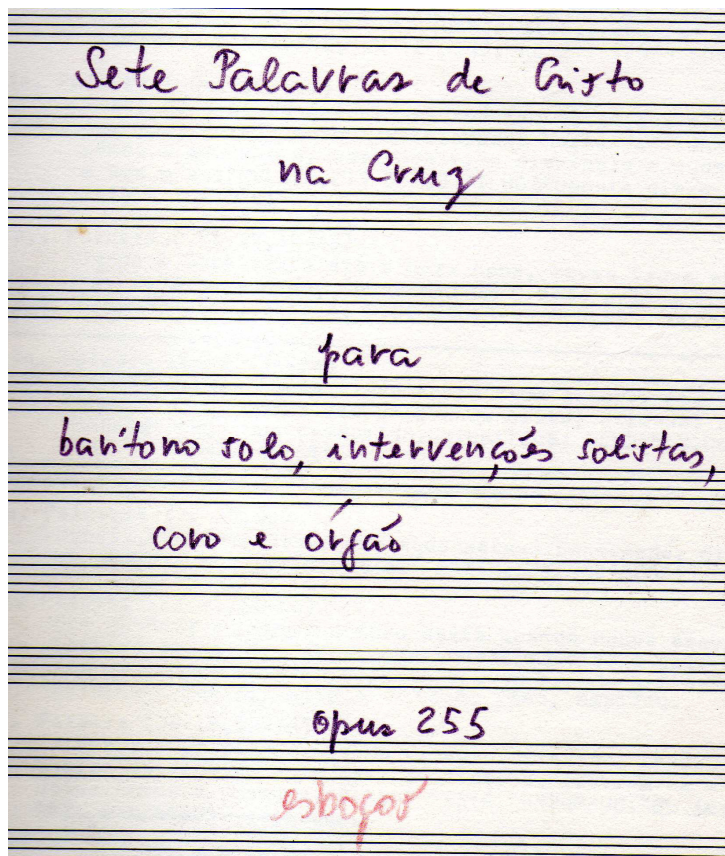 Sete Palavras de Cristo
na Cruz
para
barítono solo, intervenções solistas,
coro e órgão
opus 255
esboços